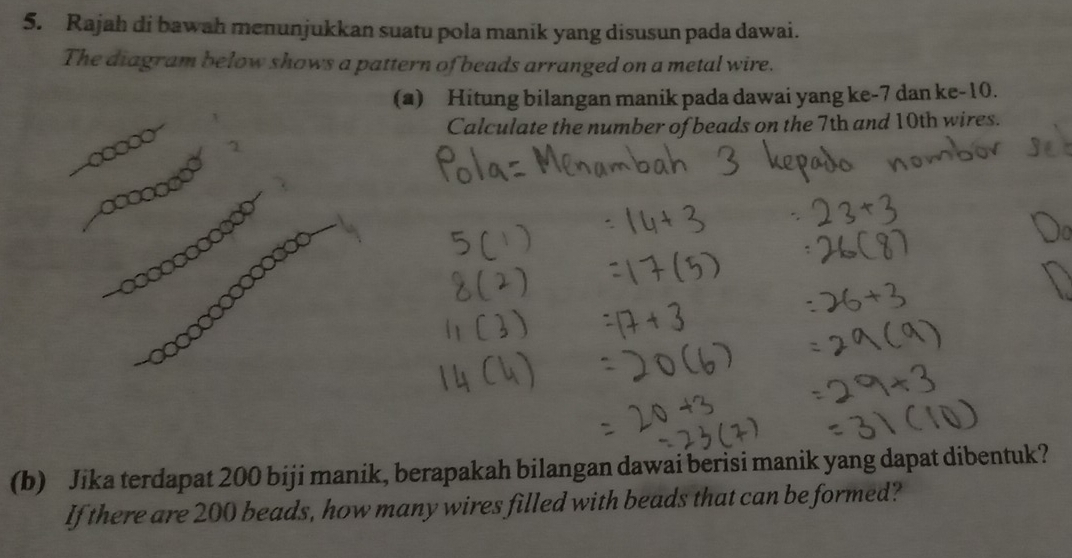 5. Rajah di bawah menunjukkan suatu pola manik yang disusun pada dawai.
The diagram below shows a pattern of beads arranged on a metal wire.
(a) Hitung bilangan manik pada dawai yang ke-7 dan ke-10.
Calculate the number of beads on the 7th and 10th wires.
1
2
3
4
Pola = Menambah 3 kepada nombor
5 (1)
8 (2)
11 (3)
14 (4)
= 14 + 3
= 17 (5)
= 17 + 3
= 20 (6)
= 20 + 3
= 23 (7)
= 23 + 3
= 26 (8)
= 26 + 3
= 29 (9)
= 29 + 3
= 31 (10)
(b) Jika terdapat 200 biji manik, berapakah bilangan dawai berisi manik yang dapat dibentuk?
If there are 200 beads, how many wires filled with beads that can be formed?